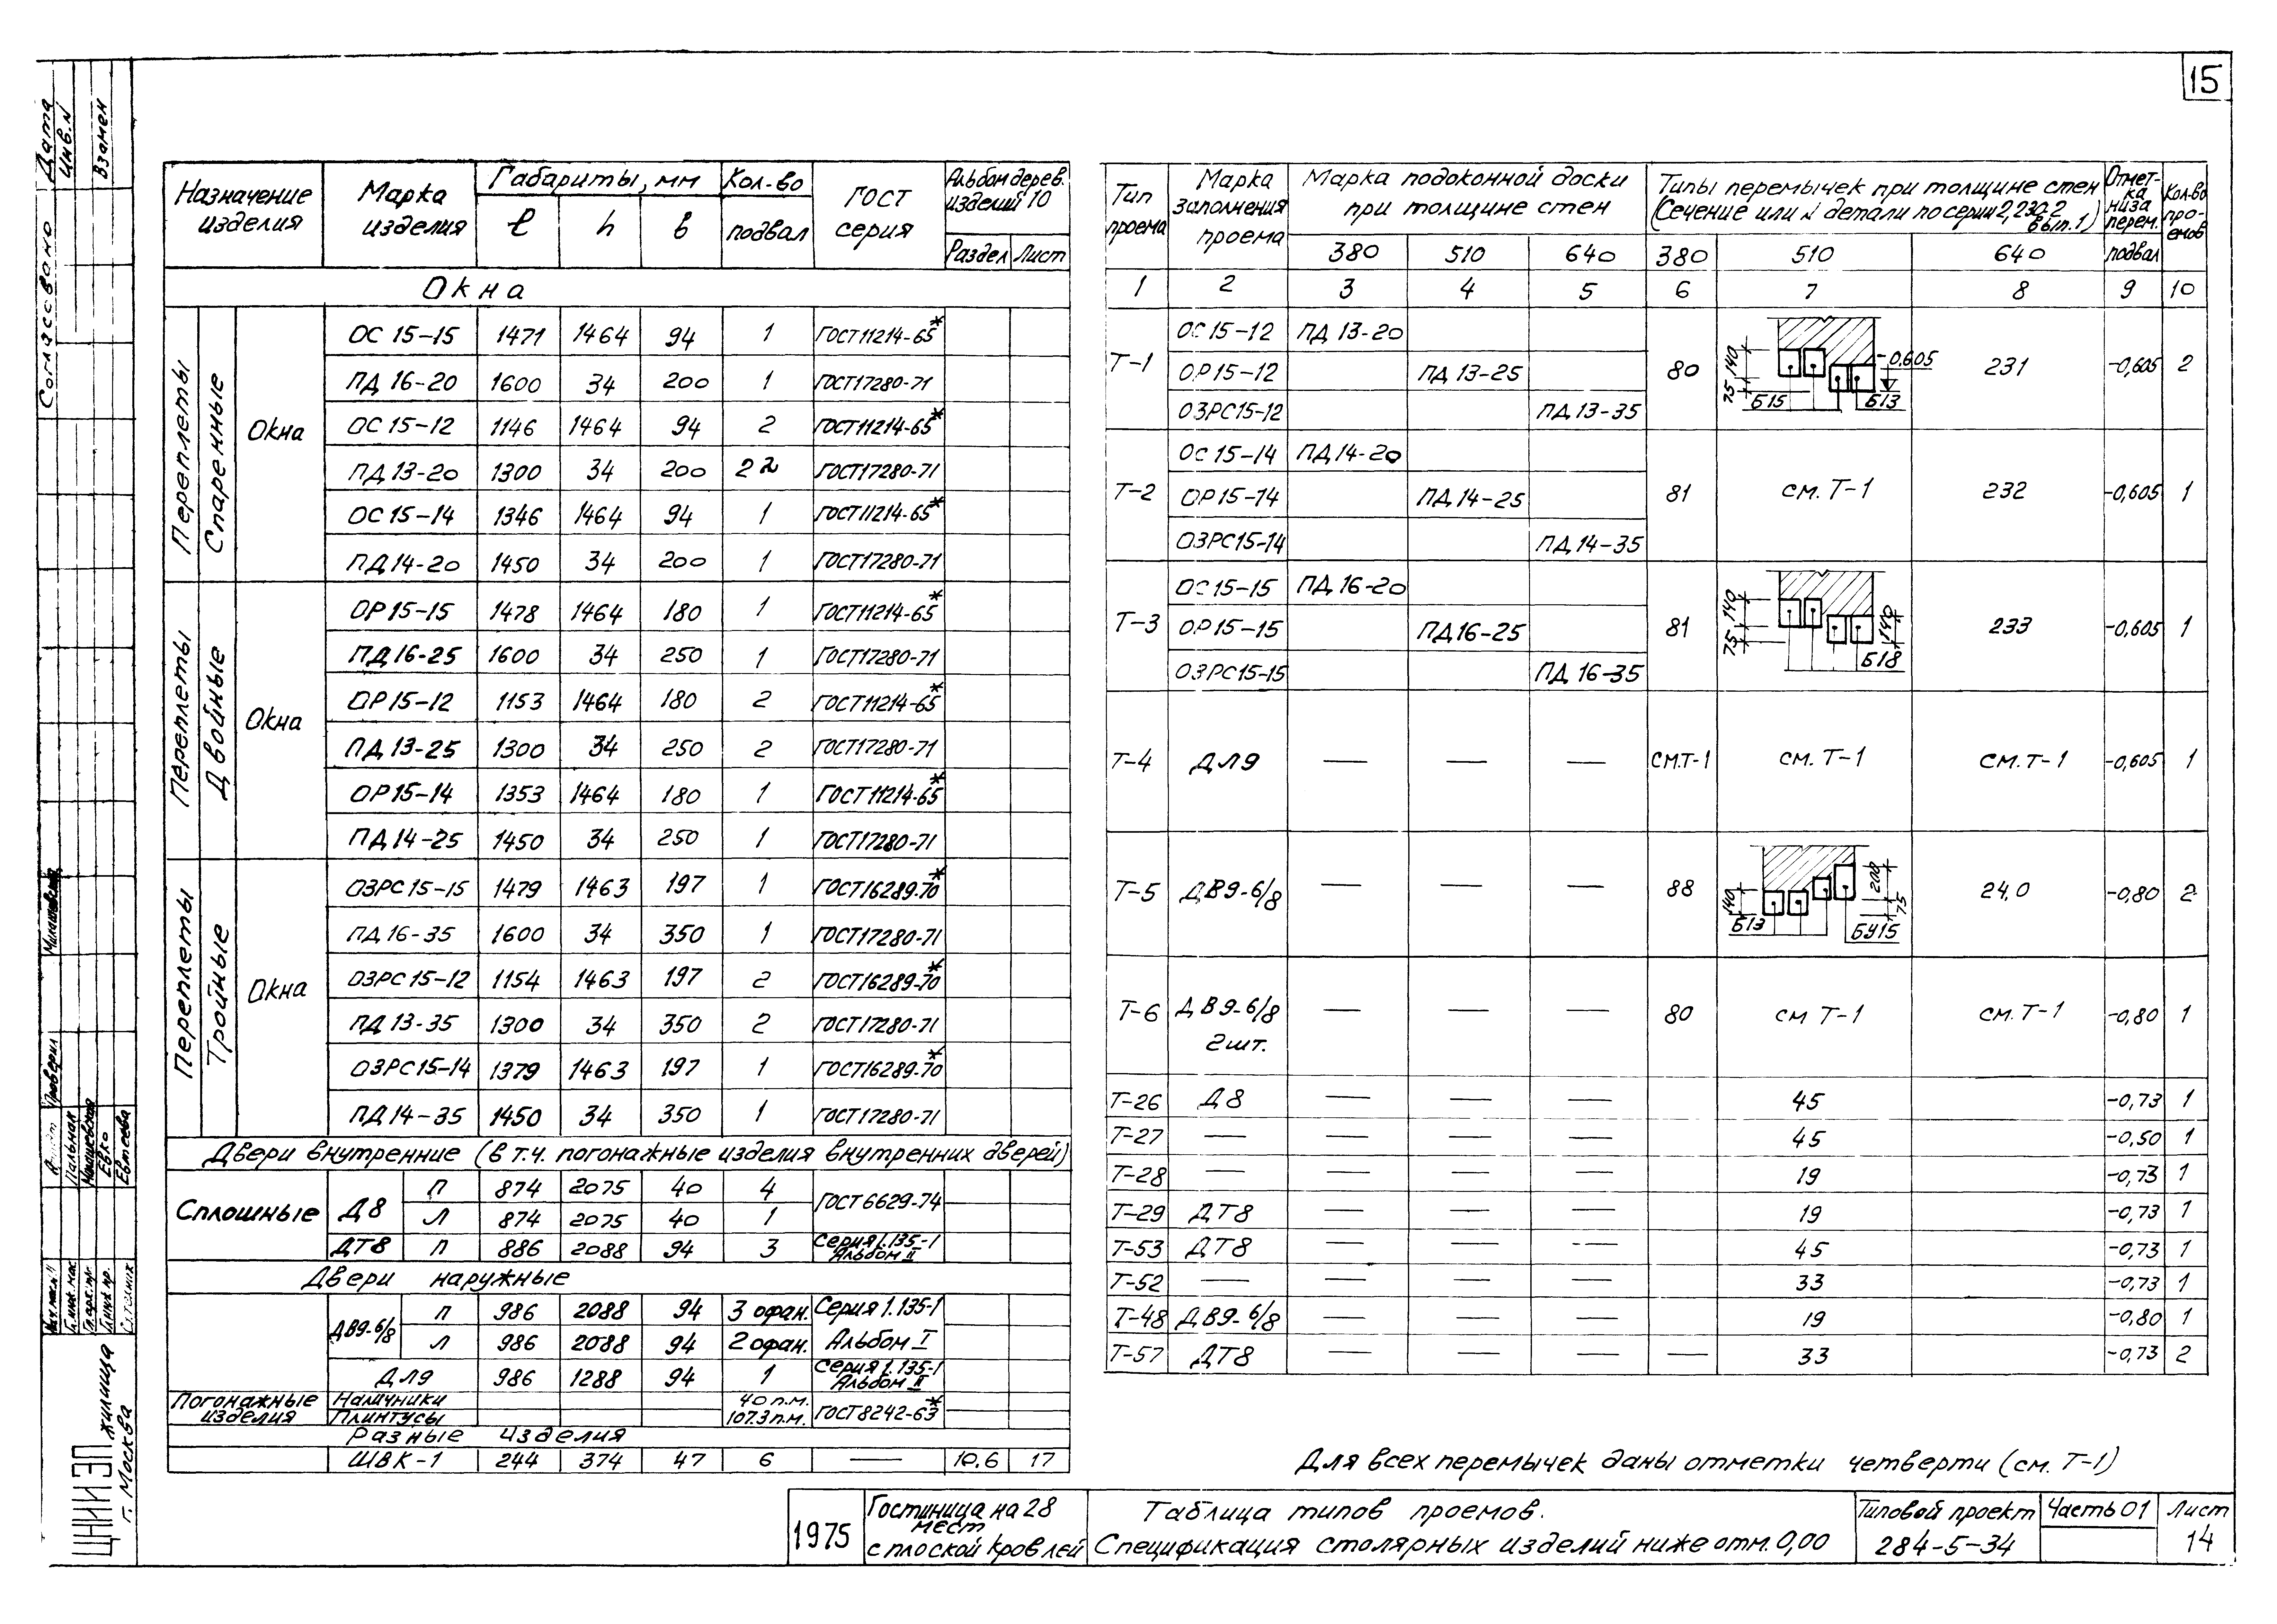 15
Назначение изделия | Марка изделия | Габариты, мм | Кол-во | ГОСТ серия | Альбом дерев. изделий 10
ℓ | h | b | подвал | Раздел | Лист
Окна
Переплеты Спаренные
Окна
ОС 15-15 | 1471 | 1464 | 94 | 1 | ГОСТ11214-65*
ПД 16-20 | 1600 | 34 | 200 | 1 | ГОСТ17280-71
ОС 15-12 | 1146 | 1464 | 94 | 2 | ГОСТ11214-65*
ПД 13-20 | 1300 | 34 | 200 | 2 2 | ГОСТ17280-71
ОС 15-14 | 1346 | 1464 | 94 | 1 | ГОСТ11214-65*
ПД 14-20 | 1450 | 34 | 200 | 1 | ГОСТ17280-71
Переплеты Двойные
Окна
ОР 15-15 | 1478 | 1464 | 180 | 1 | ГОСТ11214-65*
ПД 16-25 | 1600 | 34 | 250 | 1 | ГОСТ17280-71
ОР 15-12 | 1153 | 1464 | 180 | 2 | ГОСТ11214-65*
ПД 13-25 | 1300 | 34 | 250 | 2 | ГОСТ17280-71
ОР 15-14 | 1353 | 1464 | 180 | 1 | ГОСТ11214-65*
ПД 14-25 | 1450 | 34 | 250 | 1 | ГОСТ17280-71
Переплеты Тройные
Окна
ОЗРС 15-15 | 1479 | 1463 | 197 | 1 | ГОСТ16289-70*
ПД 16-35 | 1600 | 34 | 350 | 1 | ГОСТ17280-71
ОЗРС 15-12 | 1154 | 1463 | 197 | 2 | ГОСТ16289-70*
ПД 13-35 | 1300 | 34 | 350 | 2 | ГОСТ17280-71
ОЗРС 15-14 | 1379 | 1463 | 197 | 1 | ГОСТ16289-70*
ПД 14-35 | 1450 | 34 | 350 | 1 | ГОСТ17280-71
Двери внутренние (в т.ч. погонажные изделия внутренних дверей)
Сплошные | Д8 | П | 874 | 2075 | 40 | 4 | ГОСТ 6629-74
Л | 874 | 2075 | 40 | 1
ДТ8 | П | 886 | 2088 | 94 | 3 | Серия 1.135-1 Альбом II
Двери наружные
ДВ9-6/8 | П | 986 | 2088 | 94 | 3 офан. | Серия 1.135-1
Л | 986 | 2088 | 94 | 2 офан. | Альбом I
ДЛ9 | 986 | 1288 | 94 | 1 | Серия 1.135-1 Альбом II
Погонажные изделия | Наличники | 40 п.м. | ГОСТ8242-63*
Плинтусы | 107.3 п.м.
Разные изделия
ШВК-1 | 244 | 374 | 47 | 6 | — | 10.6 | 17
Тип проема | Марка заполнения проема | Марка подоконной доски при толщине стен | Типы перемычек при толщине стен (Сечение или N детали по серии 2,230.2 вып.1) | Отметка низа перем. | Кол-во проемов
380 | 510 | 640 | 380 | 510 | 640 | подвал
1 | 2 | 3 | 4 | 5 | 6 | 7 | 8 | 9 | 10
Т-1 | ОС 15-12 | ПД 13-20
ОР 15-12 | ПД 13-25 | 80 | 140 | 75 | -0,605 | Б15 | Б13 | 231 | -0,605 | 2
ОЗРС15-12 | ПД 13-35
Т-2 | ОС 15-14 | ПД 14-20
ОР 15-14 | ПД 14-25 | 81 | см. Т-1 | 232 | -0,605 | 1
ОЗРС15-14 | ПД 14-35
Т-3 | ОС 15-15 | ПД 16-20
ОР 15-15 | ПД 16-25 | 81 | 140 | 75 | 140 | Б18 | 233 | -0,605 | 1
ОЗРС15-15 | ПД 16-35
Т-4 | ДЛ9 | — | — | — | СМ.Т-1 | см. Т-1 | см. Т-1 | -0,605 | 1
Т-5 | ДВ9-6/8 | — | — | — | 88 | 140 | 200 | 75 | Б13 | БУ15 | 24,0 | -0,80 | 2
Т-6 | ДВ9-6/8 2шт. | — | — | — | 80 | см Т-1 | см. Т-1 | -0,80 | 1
Т-26 | Д8 | — | — | — | 45 | -0,73 | 1
Т-27 | — | — | — | — | 45 | -0,50 | 1
Т-28 | — | — | — | — | 19 | -0,73 | 1
Т-29 | ДТ8 | — | — | — | 19 | -0,73 | 1
Т-53 | ДТ8 | — | — | — | 45 | -0,73 | 1
Т-52 | — | — | — | — | 33 | -0,73 | 1
Т-48 | ДВ9-6/8 | — | — | — | 19 | -0,80 | 1
Т-57 | ДТ8 | — | — | — | — | 33 | -0,73 | 2
Для всех перемычек даны отметки четверти (см. Т-1)
1975 | Гостиница на 28 мест с плоской кровлей
Таблица типов проемов.
Спецификация столярных изделий ниже отм. 0,00
Типовой проект 284-5-34 | Часть 01 | Лист 14
Дата
Инв. N
Взамен
Согласовано
Проверил
Пальман
Евко
Евтеева
Ст. техник
ЦНИИЭП жилища
г. Москва